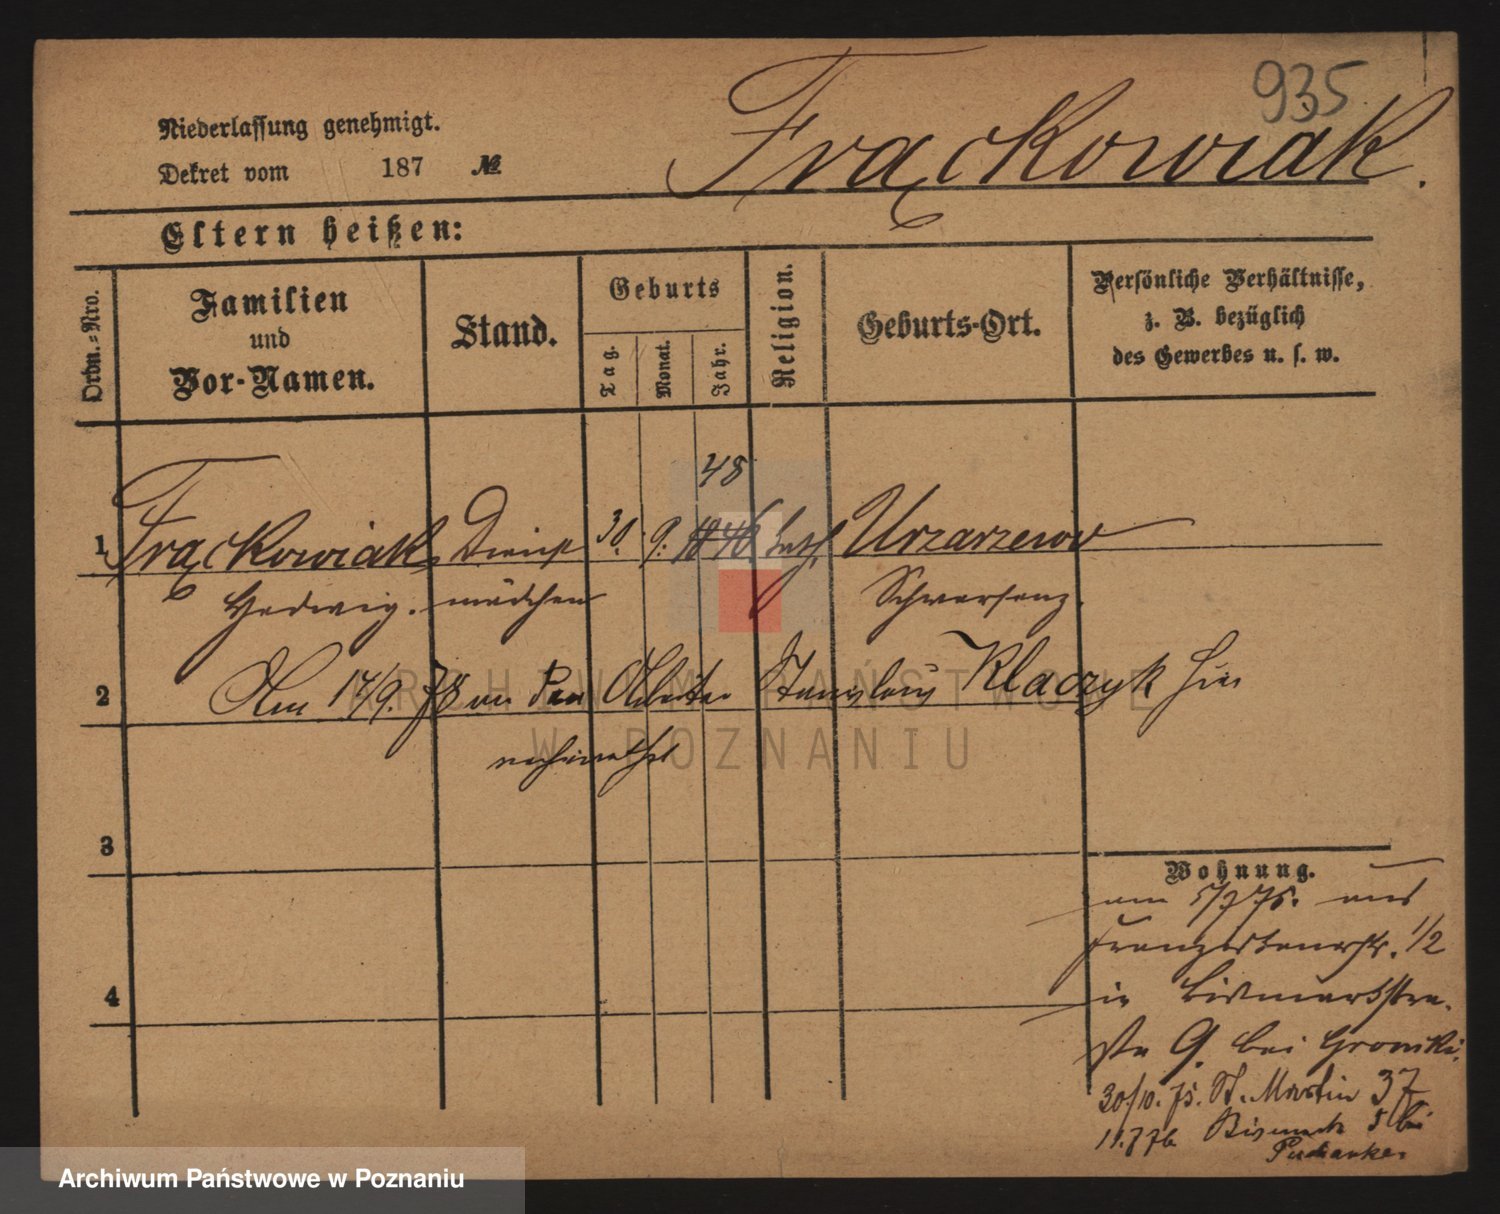 935
Niederlassung genehmigt.
Dekret vom 187 №
Frąckowiak.
Eltern heißen:
Ordn.-Nro.
Familien
und
Vor-Namen.
Stand.
Geburts
Tag.
Monat.
Jahr.
Religion.
Geburts-Ort.
Persönliche Verhältnisse,
z. B. bezüglich
des Gewerbes u. s. w.
48
1 Frąckowiak Dienst 30. 9. 1846 kath Urzarzewo
Hedwig. mädchen Schwersenz.
2 Am 14/9. 78 an den Arbeiter Stanislaus Klaczyk hier
verheirathet
3
4
Wohnung.
am 5/7 75. aus
Franziskanerstr. 1/2
in Bismarkstra.
ße 9. bei Gronski.
30/10. 75. St. Martin 37
11.7 76 Bismark 5 bei
ARCHIWUM PAŃSTWOWE
W POZNANIU
Archiwum Państwowe w Poznaniu